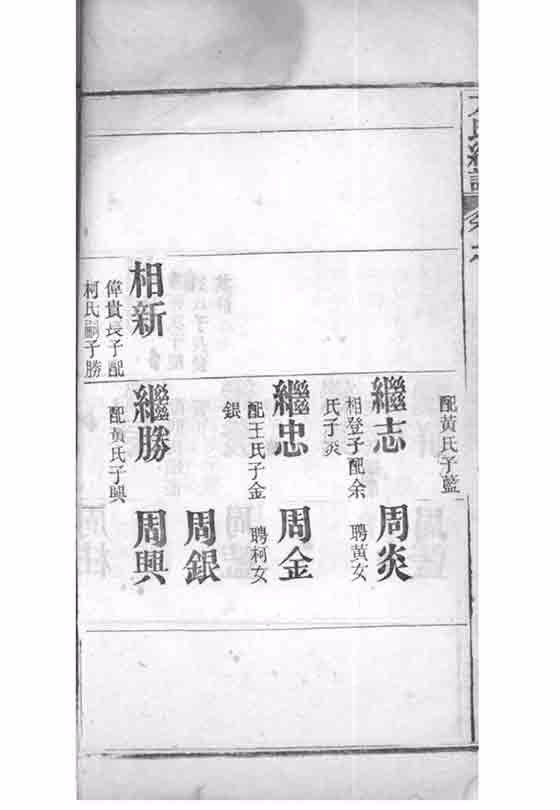 配黃氏子藍
繼志
相登子配余
氏子炎
周炎
聘黃女
繼忠
配王氏子金
銀
周金
聘柯女
周銀
相新
偉貴長子配
柯氏嗣子勝
繼勝
配黃氏子興
周興